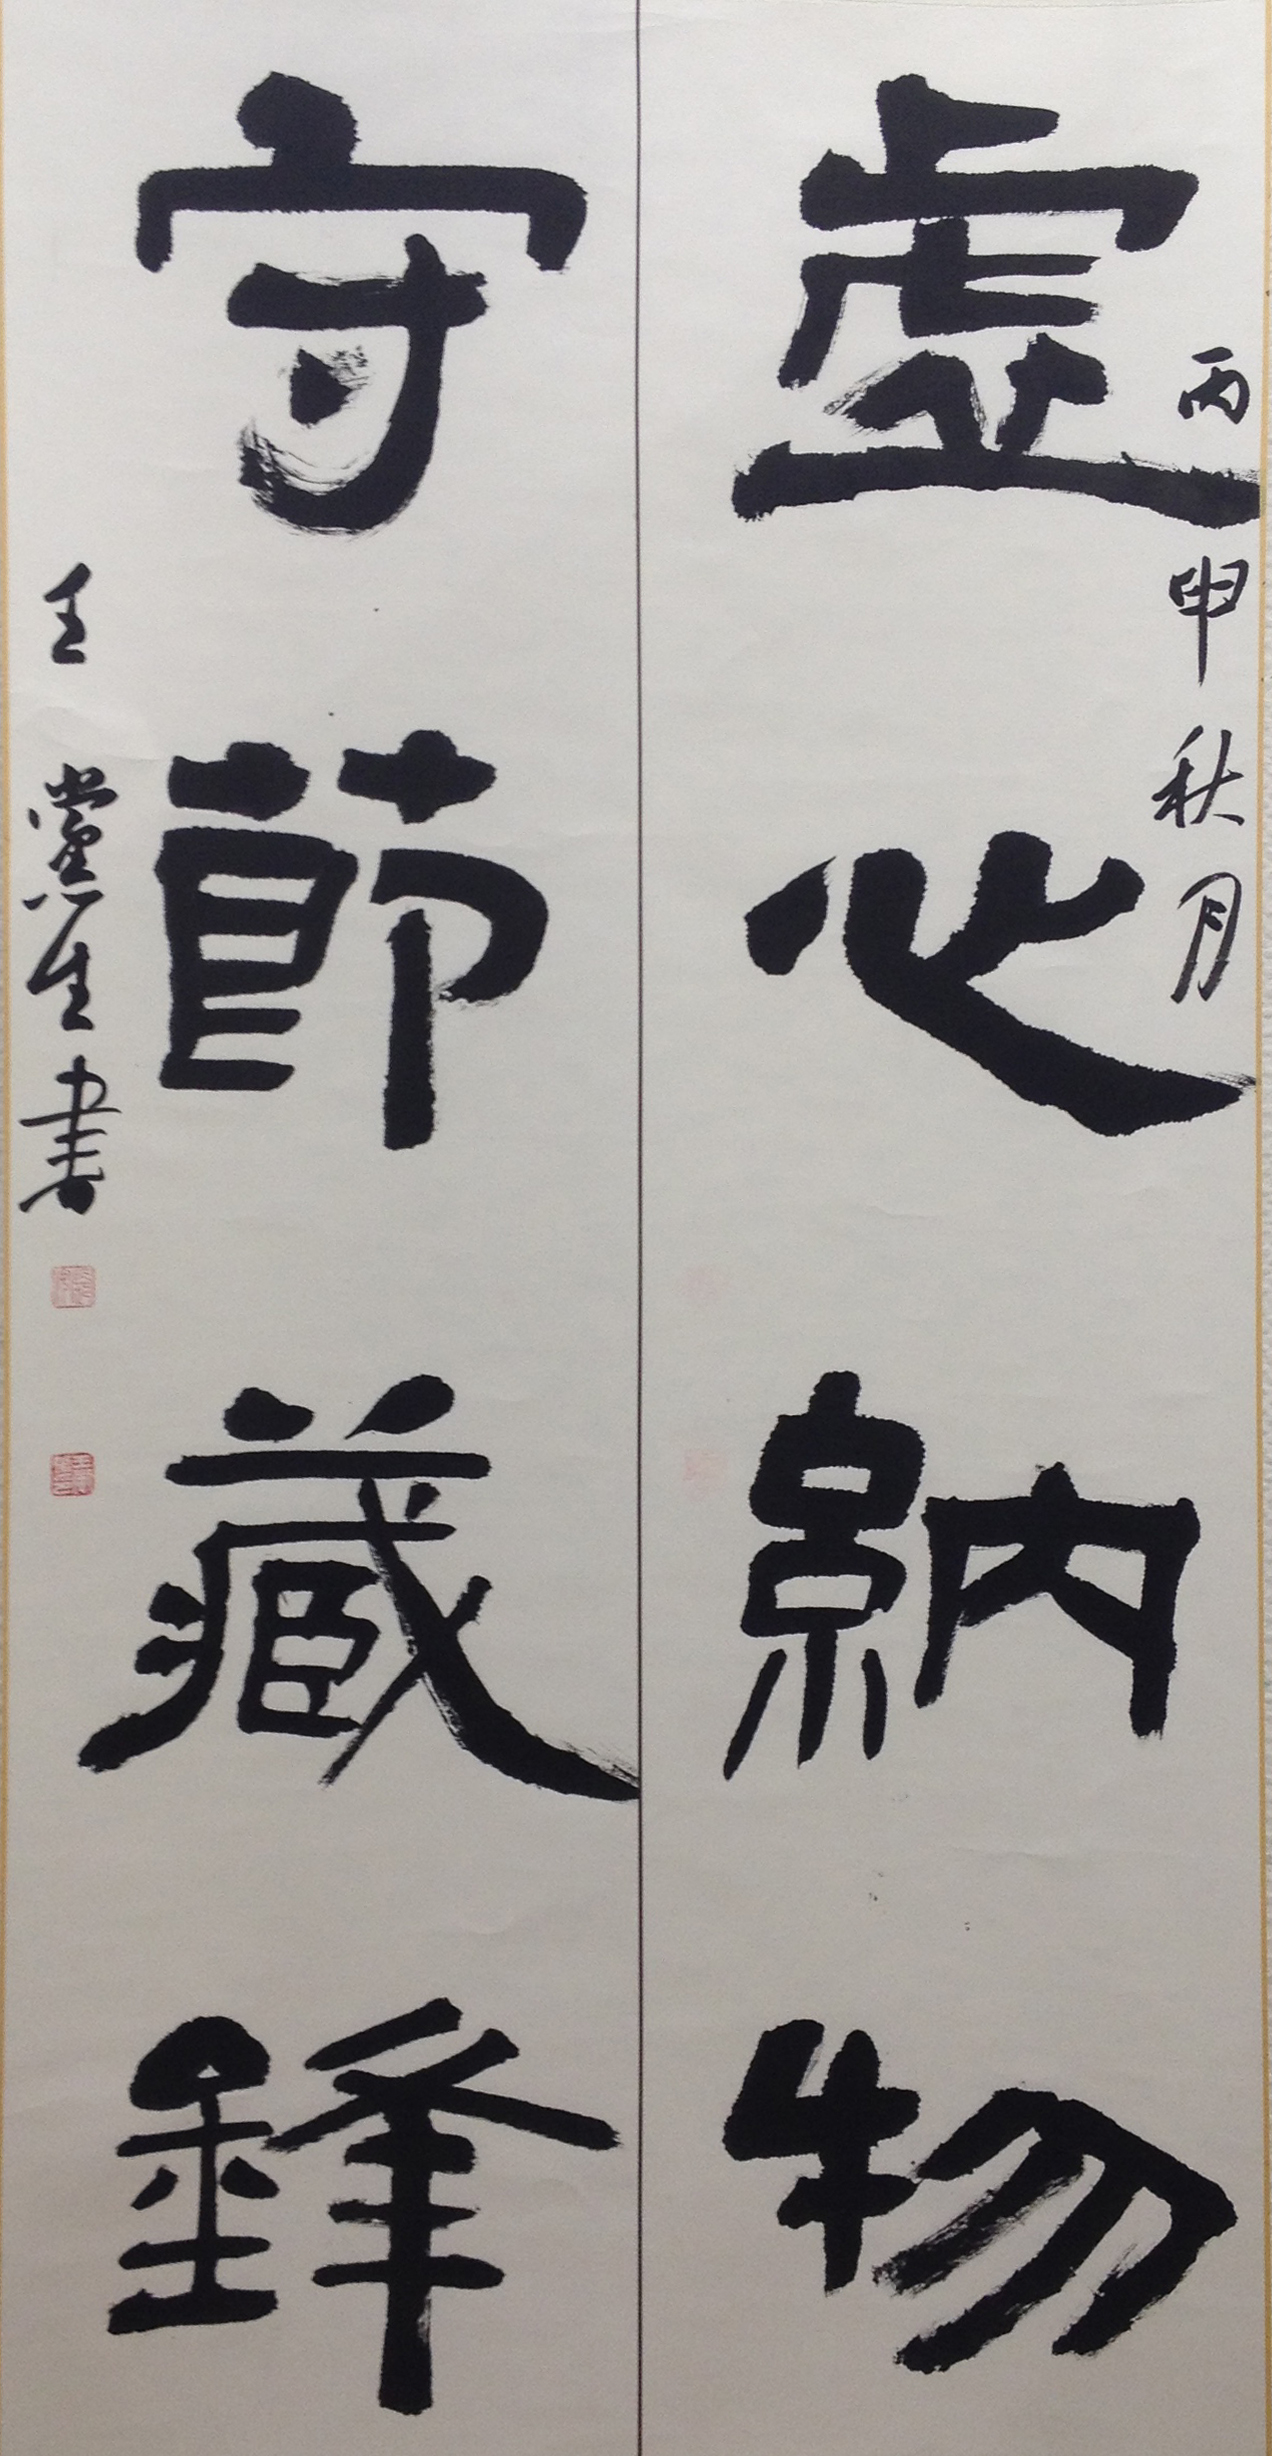 丙申秋月
虛心納物
守節藏鋒
王黨生書